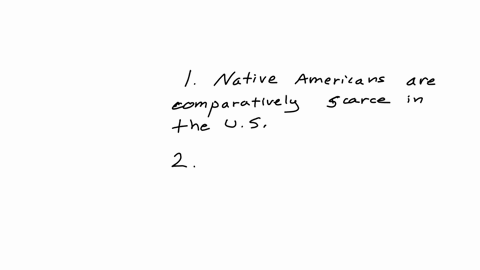 1. Native Americans are
comparatively scarce in
the U.S.
2.